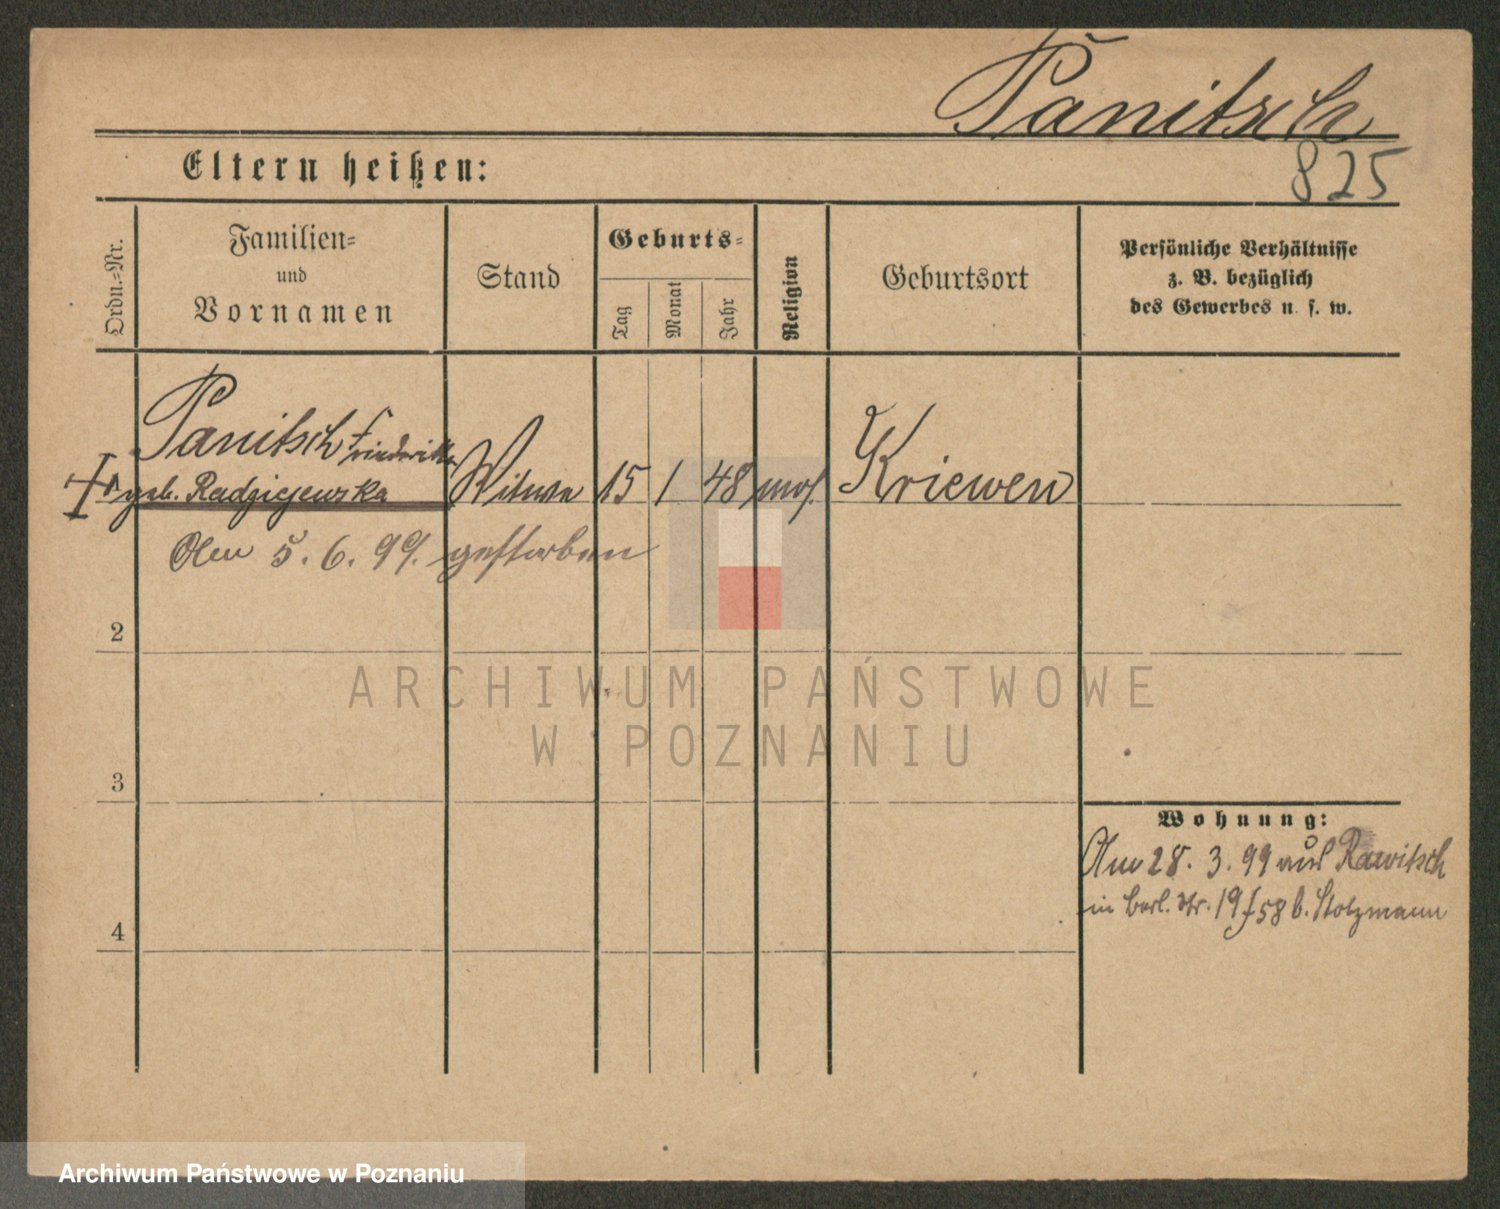 Panitsch
825
Eltern heißen:
Ordn.=Nr.
Familien=
und
Vornamen
Stand
Geburts=
Tag
Monat
Jahr
Religion
Geburtsort
Persönliche Verhältnisse
z. B. bezüglich
des Gewerbes u. s. w.
Panitsch Friederike
geb. Radziejewska
Witwe
15
1
48
mos.
Kriewen
Am 5. 6. 99. gestorben
2
3
4
Wohnung:
Am 28. 3. 99 aus Rawitsch
in Berl. Str. 19 f 58 b. Stolzmann
ARCHIWUM PAŃSTWOWE
W POZNANIU
Archiwum Państwowe w Poznaniu